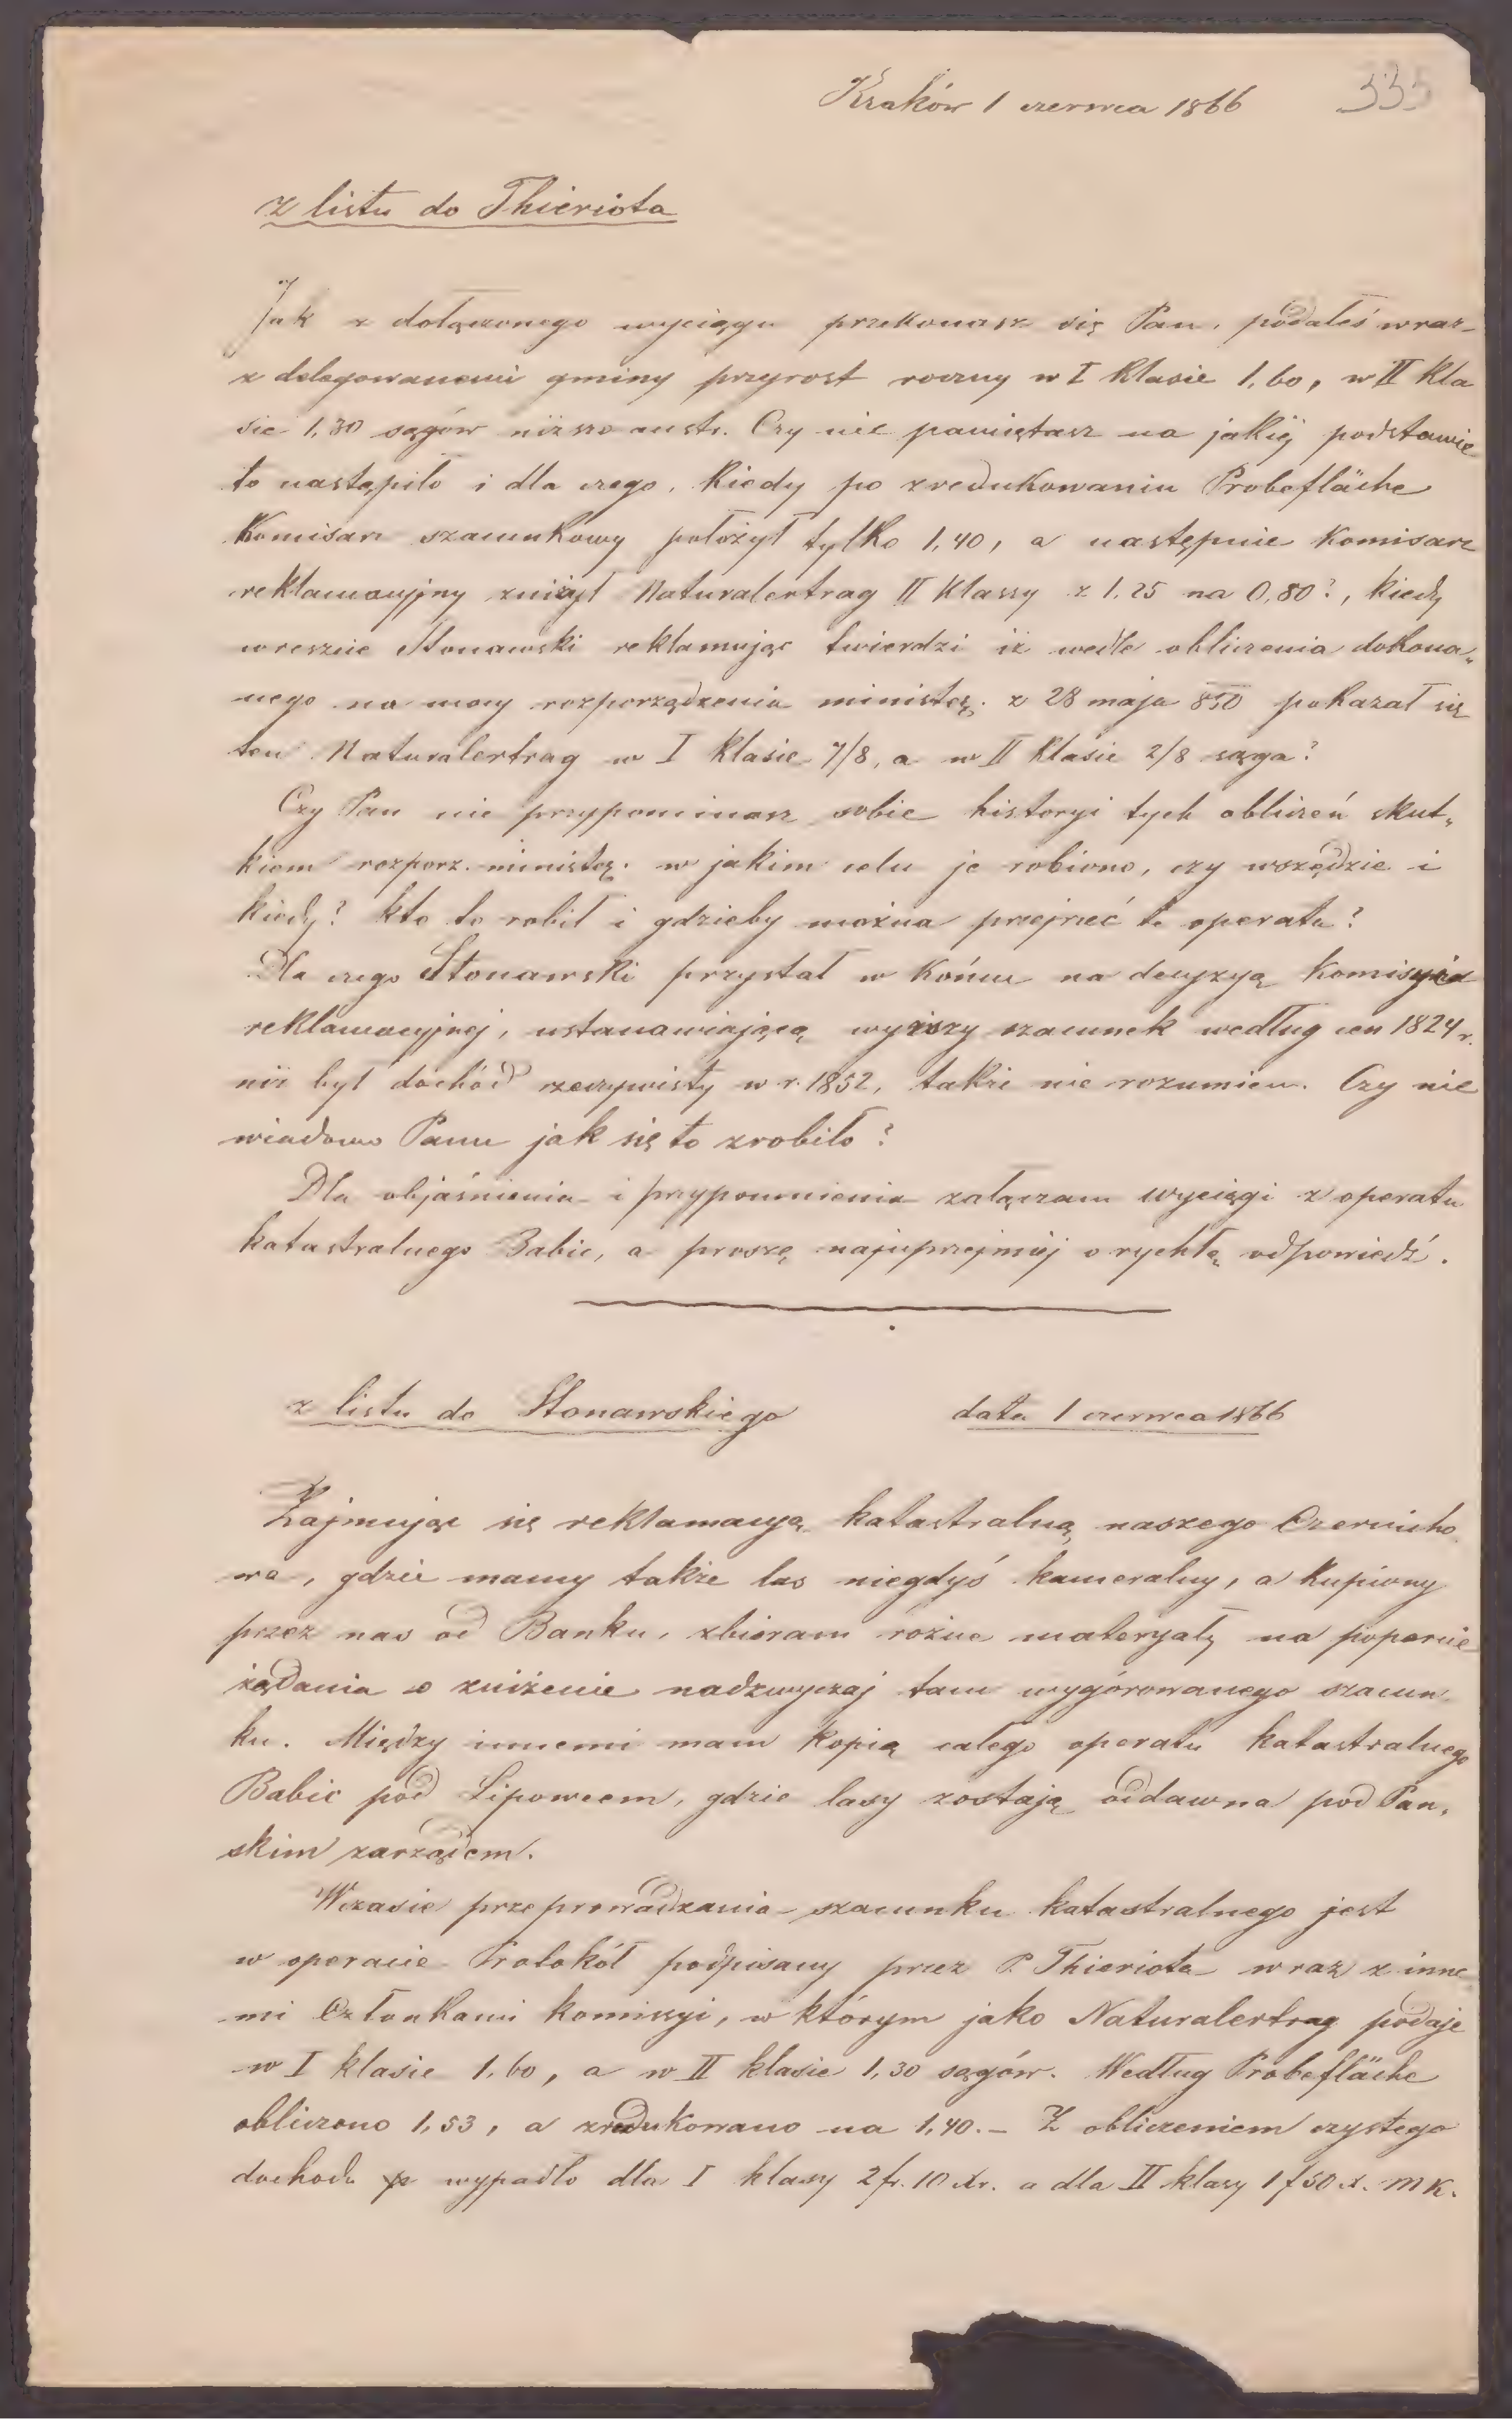 Kraków 1 czerwca 1866
335
z listu do Thieriota
Jak z dołączonego wyciągu przekonasz się Pan, podałeś wraz
z delegowanemi gminy przyrost roczny w I klasie 1,60, w II kla
sie 1,30 sągów niższo austr. Czy nie pamiętasz na jakiéj podstawie
to nastąpiło i dla czego, kiedy po zredukowaniu Probefläche
Komisarz szacunkowy położył tylko 1,40, a następnie komisarz
reklamacyjny zniżył Naturalertrag II klassy z 1,25 na 0,80?, kiedy
wreszcie Stonawski reklamując twierdzi iż wedle obliczenia dokona„
nego na mocy rozporządzenia ministr. z 28 maja 850 pokazał się
ten Naturalertrag w I klasie 7/8, a w II klasie 2/8 sąga?
Czy Pan nie przypominasz sobie historyi tych obliczeń skut„
kiem rozporz. ministr. w jakim celu je robiono, czy wszędzie i
kiedy? kto to robił i gdzieby można przejrzeć te operata?
Dla czego Stonawski przystał w końcu na decyzyą komisyi
reklamacyjnej, ustanawiającą wyższy szacunek według cen 1824 r.
niż był dochód rzeczywisty w r. 1852, także nie rozumiem. Czy nie
wiadomo Panu jak się to zrobiło?
Dla objaśnienia i przypomnienia załączam wyciągi z operatu
katastralnego Babic, a proszę najuprzejmiéj o rychłą odpowiedź.
z listu do Stonawskiego data 1 czerwca 1866
Zajmując się reklamacyą katastralną naszego Czernicho
wa, gdzie mamy także las niegdyś kameralny, a kupiony
przez nas od Banku, zbieram różne materyały na poparcie
żądania o zniżenie nadzwyczaj tam wygórowanego szacun
ku. Między innemi mam kopią całego operatu katastralnego
Babic pod Lipowcem, gdzie lasy zostają oddawna pod Pań„
skim zarządem.
W czasie przeprowadzania szacunku katastralnego jest
w operacie Protokół podpisany przez P. Thieriota wraz z inne
mi Członkami komissyi, w którym jako Naturalertrag podaje
w I klasie 1,60, a w II klasie 1,30 sągów. Według Probefläche
obliczono 1,53, a zredukowano na 1,40. – Z obliczeniem czystego
dochodu wypadło dla I klasy 2 fr. 10 xr. a dla II klasy 1 f 50 x. M K.